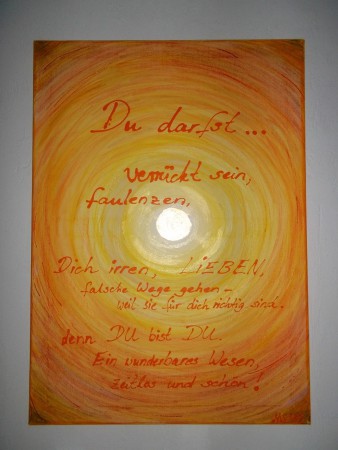 Du darfst...
verrückt sein,
faulenzen,
Dich irren, LiEBEN,
falsche Wege gehen -
weil sie für dich richtig sind,
denn DU bist DU.
Ein wunderbares Wesen,
zeitlos und schön!